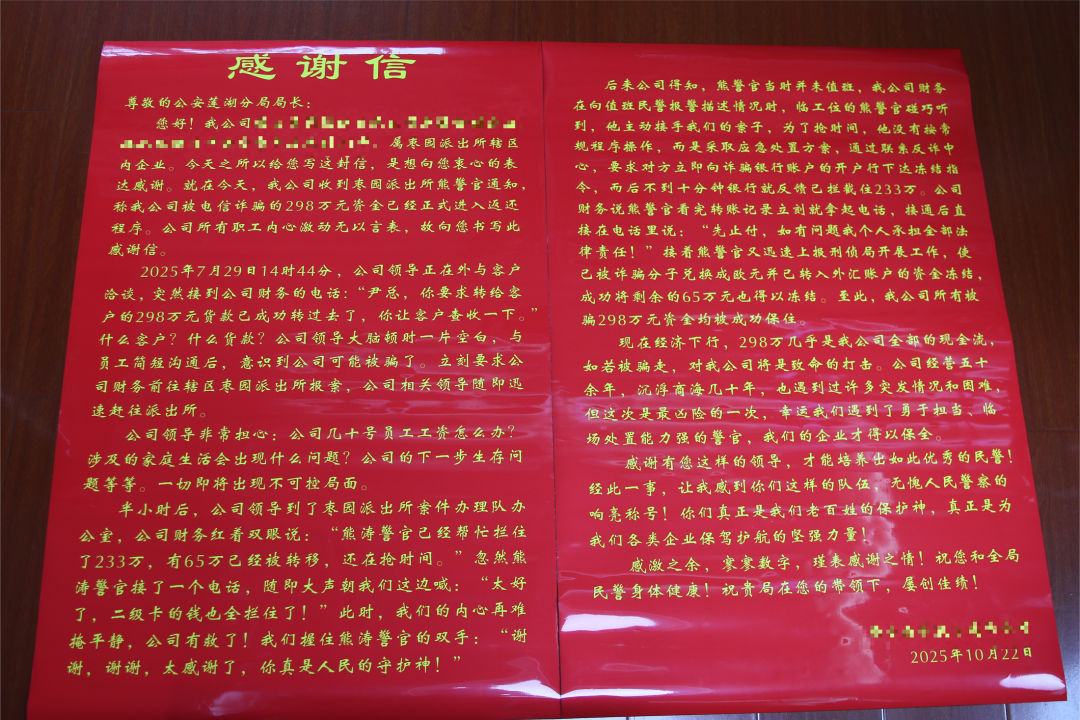 感谢信
尊敬的公安莲湖分局局长：
您好！我公司
属枣园派出所辖区
内企业。今天之所以给您写这封信，是想向您衷心的表
达感谢。就在今天，我公司收到枣园派出所熊警官通知，
称我公司被电信诈骗的298万元资金已经正式进入返还
程序。公司所有职工内心激动无以言表，故向您书写此
感谢信。
2025年7月29日14时44分，公司领导正在外与客户
洽谈，突然接到公司财务的电话：“尹总，你要求转给客
户的298万元货款已成功转过去了，你让客户查收一下。”
什么客户？什么货款？公司领导大脑顿时一片空白，与
员工简短沟通后，意识到公司可能被骗了。立刻要求公
司财务前往辖区枣园派出所报案，公司相关领导随即迅
速赶往派出所。
公司领导非常担心：公司几十号员工工资怎么办？
涉及的家庭生活会出现什么问题？公司的下一步生存问
题等等。一切即将出现不可控局面。
半小时后，公司领导到了枣园派出所案件办理队办
公室，公司财务红着双眼说：“熊涛警官已经帮忙拦住
了233万，有65万已经被转移，还在抢时间。”忽然熊
涛警官接了一个电话，随即大声朝我们这边喊：“太好
了，二级卡的钱也全拦住了！”此时，我们的内心再难
掩平静，公司有救了！我们握住熊涛警官的双手：“谢
谢，谢谢，太感谢了，你真是人民的守护神！”
后来公司得知，熊警官当时并未值班，我公司财务
在向值班民警报警描述情况时，临工位的熊警官碰巧听
到，他主动接手我们的案子，为了抢时间，他没有按常
规程序操作，而是采取应急处置方案，通过联系反诈中
心，要求对方立即向诈骗银行账户的开户行下达冻结指
令，而后不到十分钟银行就反馈已拦截住233万。公司
财务说熊警官看完转账记录立刻就拿起电话，接通后直
接在电话里说：“先止付，如有问题我个人承担全部法
律责任！”接着熊警官又迅速上报刑侦局开展工作，使
已被诈骗分子兑换成欧元并已转入外汇账户的资金冻结，
成功将剩余的65万元也得以冻结。至此，我公司所有被
骗298万元资金均被成功保住。
现在经济下行，298万几乎是我公司全部的现金流，
如若被骗走，对我公司将是致命的打击。公司经营五十
余年，沉浮商海几十年，也遇到过许多突发情况和困难，
但这次是最凶险的一次，幸运我们遇到了勇于担当、临
场处置能力强的警官，我们的企业才得以保全。
感谢有您这样的领导，才能培养出如此优秀的民警！
经此一事，让我感到你们这样的队伍，无愧人民警察的
响亮称号！你们真正是我们老百姓的保护神，真正是为
我们各类企业保驾护航的坚强力量！
感激之余，寥寥数字，瑾表感谢之情！祝您和全局
民警身体健康！祝贵局在您的带领下，屡创佳绩！
2025年10月22日